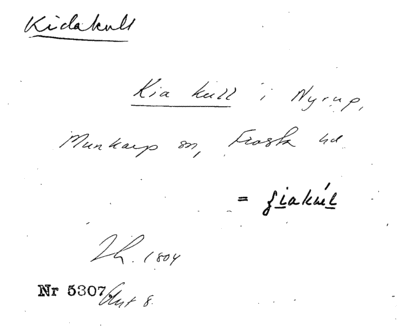 Kidakull
Kia kull i Nyrup,
Munkarp sn, Frosta hd
=
1804
Nr 5307
8.